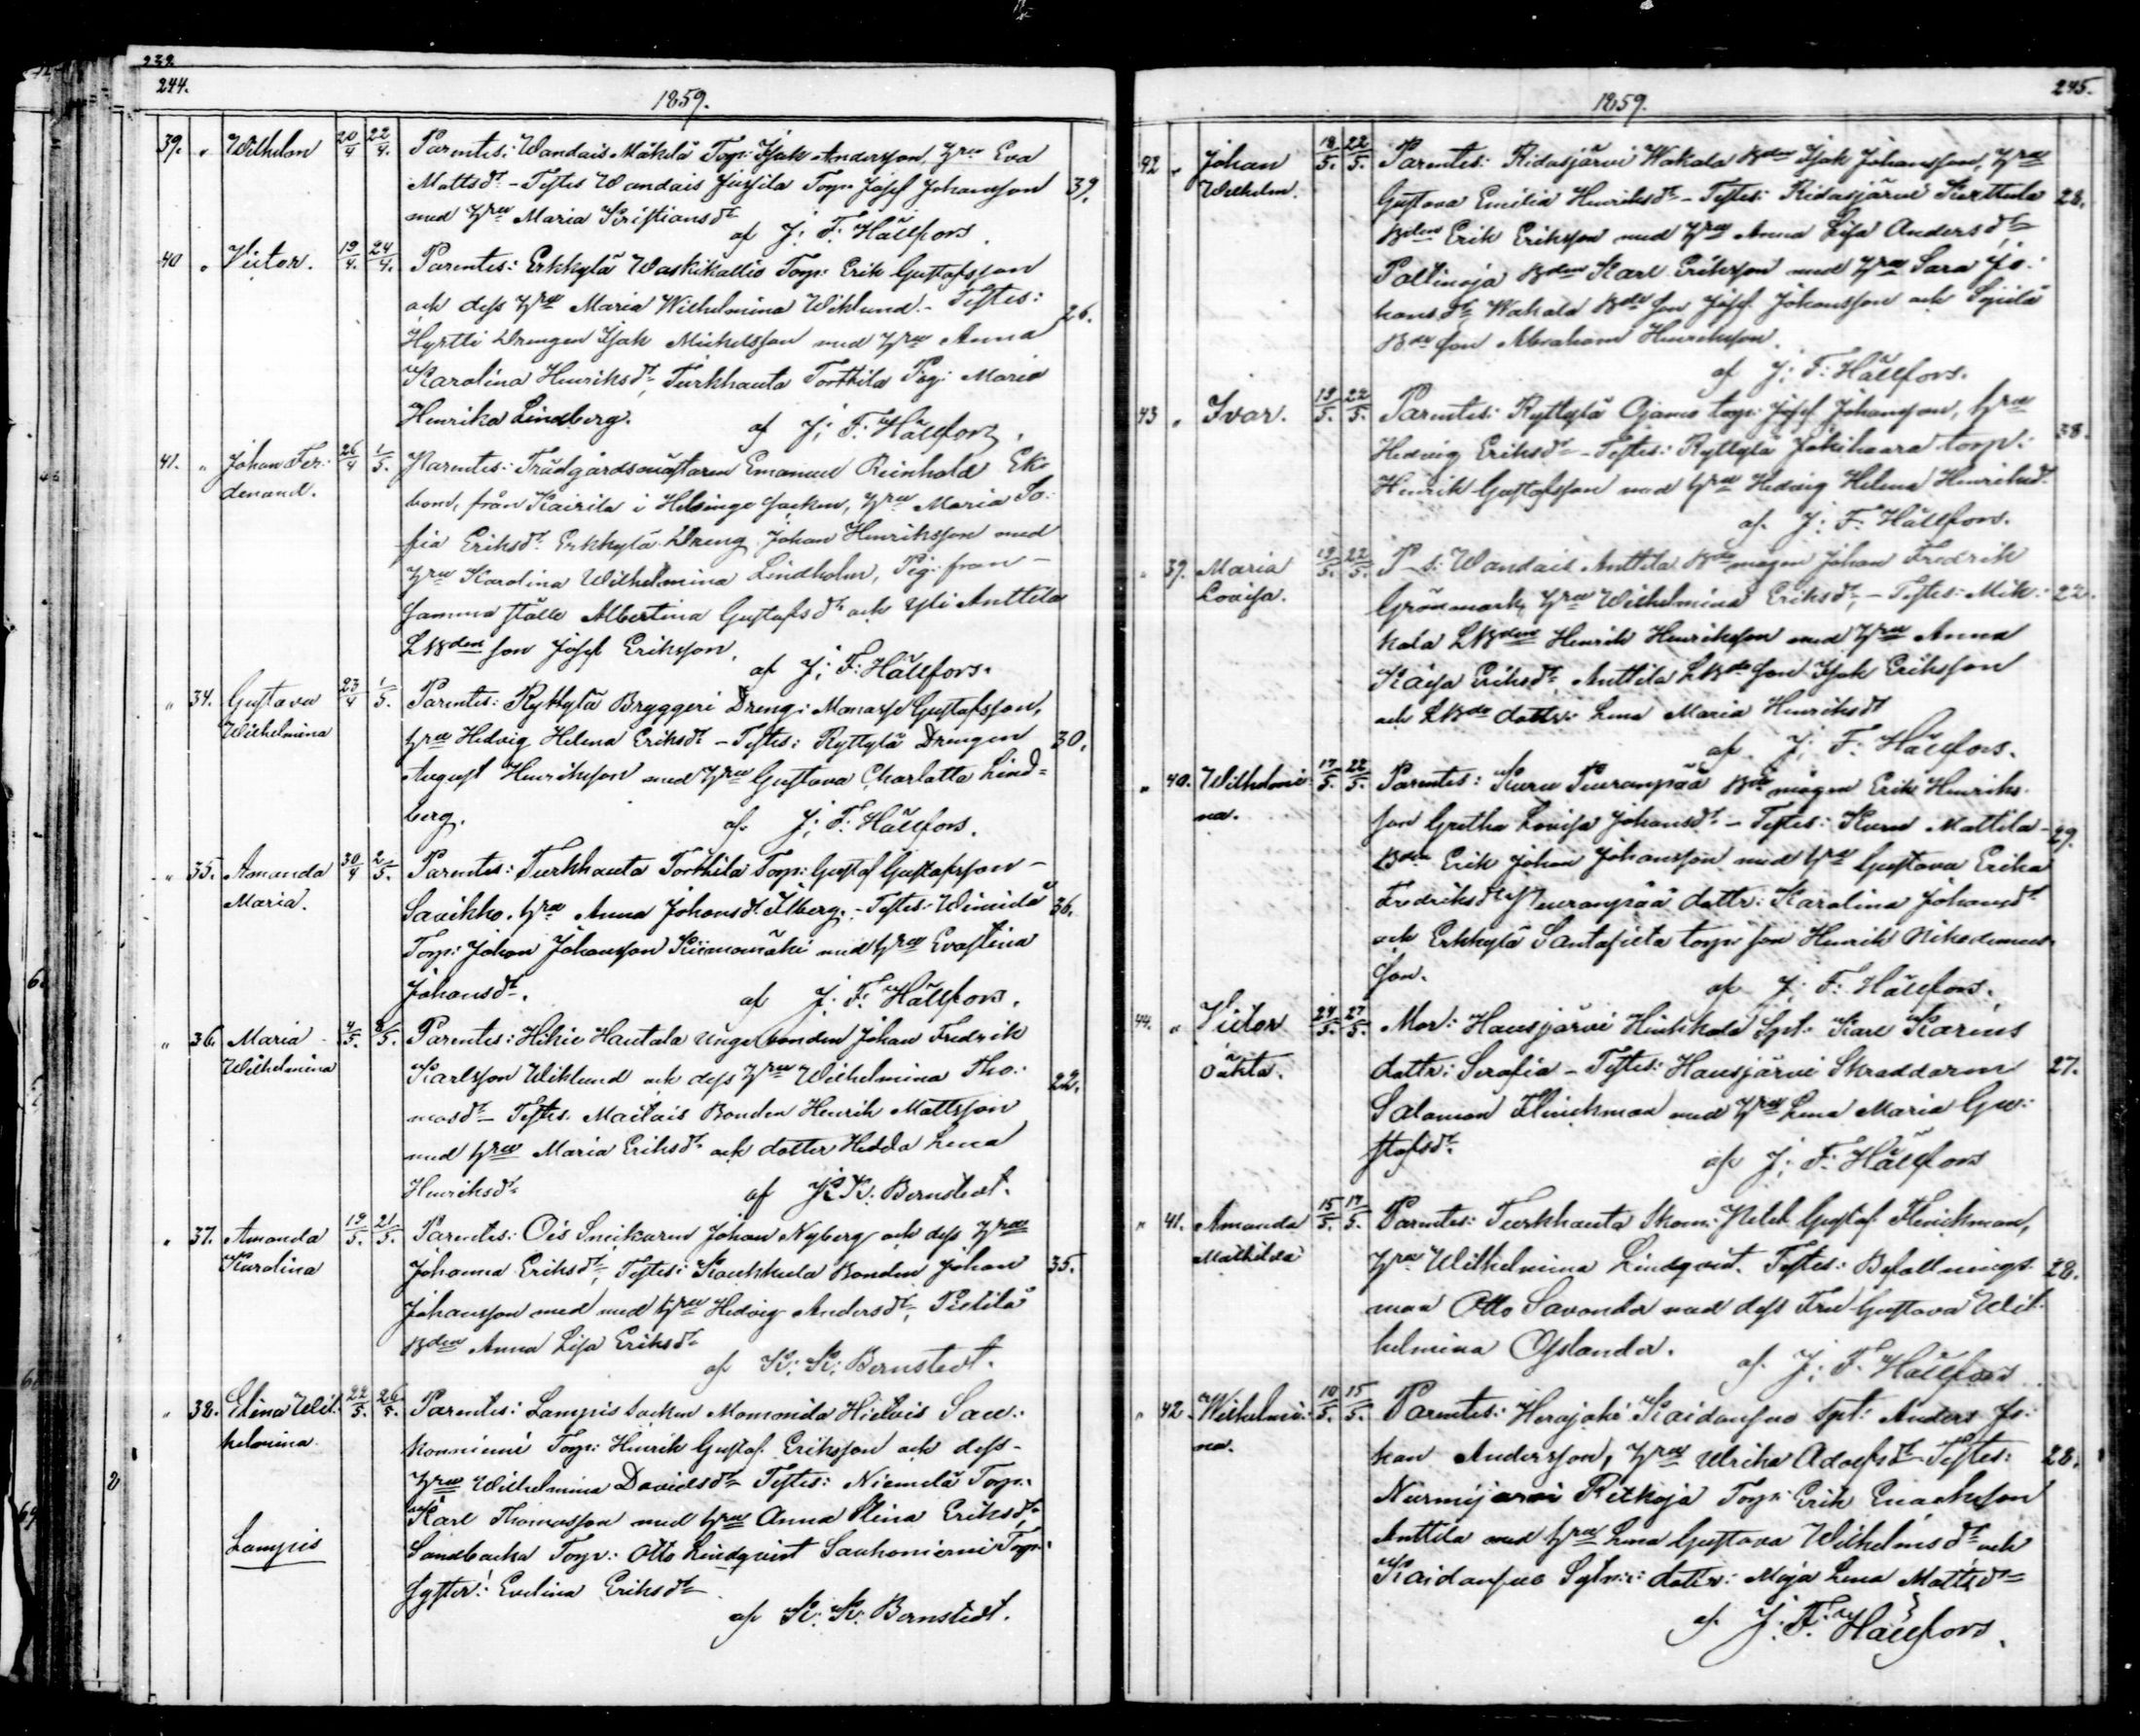 232.
244.
1859.
39. " Wilhelm 20/4 22/4. Parentes: Wandais Mäkelä Torp: Isak Andersson, Hru Eva
Mattsdr - Testes Wandais Jussila Torp: Josef Johansson 39.
med Hru Maria Kristiansdr
af J: F: Hällfors.
40 " Victor. 19/4. 24/4. Parentes: Erkkylä Waskikallio Torp: Erik Gustafsson
och dess Hru Maria Wilhelmina Wiklund. - Testes:
Hyrtti Drengen Isak Mickelsson med Hru Anna 26.
Karolina Henriksdr, Turkhauta Torttila Pig: Maria
Henrika Lindberg.
af J: F: Hällfors.
41. " Johan Fer- 26/4 1/5. Parentes: Trädgårdsmästaren Emanuel Reinhold Ek-
denand. bom, från Kairila i Helsinge socken, Hru Maria So-
fia Eriksdr. Erkkylä Dreng Johan Henriksson med
Hru Karolina Wilhelmina Lindholm, Pig: från -
samma ställe Albertina Gustafsdr och Yli Anttila
LBden son Josef Eriksson.
af J: F: Hällfors.
" 34. Gustava 23/4 1/5. Parentes: Ryttylä Bryggeri Dreng: Manasse Gustafsson,
Wilhelmina Hru Hedvig Helena Eriksdr - Testes: Ryttylä Drengen 30.
August Henriksson med Hru Gustava Charlatta Lind=
berg. af J: F: Hällfors.
" 35. Amanda 30/4 2/5. Parentes: Turkhauta Torttila Torp: Gustaf Gustafsson -
Maria. Savikko. Hru Anna Johansdr Ilberg. - Testes: 36.
Torp: Johan Johansson Kiimamäki med Hru Evastina
Johansdr. af J: F: Hällfors.
" 36. Maria 4/5. 8/5. Parentes: Hikie Hautala Unge bonden Johan Fredrik
Wilhelmina Karlsson Wiklund och dess Hru Wilhelmina Tho- 22.
masdr - Testes. Bonden Henrik Mattsson
med Hru Maria Eriksdr och dotter Hedda Lena
Henriksdr af K: K: Bernstedt.
" 37. Amanda 19/5. 21/5. Parentes: Ois Snickaren Johan Nyberg och dess Hru
Karolina Johanna Eriksdr, Testes: Kaukkula Bonden Johan 35.
Johansson med med Hru Hedvig Andersdr, Pietilä
Bden Anna Lisa Eriksdr
af K: K: Bernstedt.
" 38. Elina Wil- 22/5. 26/5. Parentes: Lampis socken Mommila Hietois Sau-
helmina. konniemi Torp: Henrik Gustaf Eriksson och dess -
Hru Wilhelmina Davidsdr Testes: Niemelä Torp:
Karl Thomasson med Hru Anna Stina Eriksdr,
Lampis Sandbacka Torp: Otto Lindqvist Saukoniemi Torp:
syster: Evelina Eriksdr
af K: K: Bernstedt.
245.
1859.
42 " Johan 18/5. 22/5. Parentes: Ridasjärvi Wakala Bden Isak Johansson, Hru
Wilhelm. Gustava Emilia Henriksdr - Testes: Ridasjärvi Kerttula 28.
Bden Erik Eriksson med Hru Anna Lisa Andersdr,
Paltinoja Bden Karl Eriksson med Hru Sara Jo-
hansdr Wakala Bde son Josef Johansson och
Bde son Abraham Henriksson.
af J: F: Hällfors.
43 " Ivar. 19/5. 22/5. Parentes: Ryttylä Ojamo torp: Josef Johansson, Hru
Hedvig Eriksdr - Testes: Ryttylä Jokihaara torp: 38.
Henrik Gustafsson med Hru Hedvig Helena Henriksdr.
af J: F: Hällfors.
" 39. Maria 19/5. 22/5. P-s: Wandais Anttila Bde mågen Johan Fredrik
Lovisa. Grönmark, Hru Wilhelmina Eriksdr, - Testes: Mik- 22.
kola LBden Henrik Henriksson med Hru Anna
Kaisa Eriksdr, Anttila LBde son Isak Eriksson
och LBde dottr: Lena Maria Henriksdr
af J: F: Hällfors.
" 40. Wilhelmi- 17/5. 22/5. Parentes: Kuru Peuranpää Bde mågen Erik Henriks-
na. son Gretha Lovisa Johansdr - Testes: Kuru Mattila - 29.
Bden Erik Johan Johansson med Hru Gustava Erika
Fredriksdr Peuranpää dottr: Karolina Johansdr
och Erkkylä Santasilta torp: son Henrik Nikodemus-
son.
af J: F: Hällfors.
44. " Victor 24/5. 27/5. Mor: Hausjärvi Hinkkala Spt: Karl Karins
oäkta. dottr: Serafia - Testes: Hausjärvi Skraddaren 27.
Salomon Flinckman med Hru Lena Maria Gu-
stafsdr.
af J: F: Hällfors
" 41. Amanda 15/5. 17/5. Parentes: Turkhauta Skom: Gustaf Flinckman,
Mathilda Hru Wilhelmina Lindqvist. Testes: Befallnings- 28.
man Otto Savonder med dess Fru Gustava Wil-
helmina Oslander.
af J: F: Hällfors
" 42. Wilhelmi- 10/5. 15/5. Parentes: Herajoki Kaidansuo Spt: Anders Jo-
na. han Andersson, Hru Ulrika Adolfsdr - Testes: 28.
Nurmijärvi Ritkoja Torp: Erik Enacksson
Anttila med Hru Lena Gustava Wilhelmsdr och
Kaidansuo Sytn: dottr: Maja Lena Mattsdr
af J: F: Hällfors.